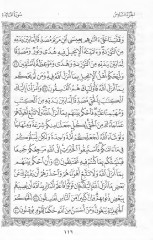 الجزء السادس
سورة المائدة
وَقَفَّيْنَا عَلَىٰ ءَاثَٰرِهِم بِعِيسَى ٱبْنِ مَرْيَمَ مُصَدِّقًا لِّمَا بَيْنَ يَدَيْهِ
مِنَ ٱلتَّوْرَىٰةِ وَءَاتَيْنَٰهُ ٱلْإِنجِيلَ فِيهِ هُدًى وَنُورٌ وَمُصَدِّقًا لِّمَا
بَيْنَ يَدَيْهِ مِنَ ٱلتَّوْرَىٰةِ وَهُدًى وَمَوْعِظَةً لِّلْمُتَّقِينَ ٤٦
وَلْيَحْكُمْ أَهْلُ ٱلْإِنجِيلِ بِمَآ أَنزَلَ ٱللَّهُ فِيهِ وَمَن لَّمْ يَحْكُم
بِمَآ أَنزَلَ ٱللَّهُ فَأُوْلَٰٓئِكَ هُمُ ٱلْفَٰسِقُونَ ٤٧ وَأَنزَلْنَآ إِلَيْكَ
ٱلْكِتَٰبَ بِٱلْحَقِّ مُصَدِّقًا لِّمَا بَيْنَ يَدَيْهِ مِنَ ٱلْكِتَٰبِ
وَمُهَيْمِنًا عَلَيْهِ فَٱحْكُم بَيْنَهُم بِمَآ أَنزَلَ ٱللَّهُ وَلَا تَتَّبِعْ
أَهْوَآءَهُمْ عَمَّا جَآءَكَ مِنَ ٱلْحَقِّ لِكُلٍّ جَعَلْنَا مِنكُمْ شِرْعَةً
وَمِنْهَاجًا وَلَوْ شَآءَ ٱللَّهُ لَجَعَلَكُمْ أُمَّةً وَٰحِدَةً وَلَٰكِن
لِّيَبْلُوَكُمْ فِي مَآ ءَاتَىٰكُمْ فَٱسْتَبِقُواْ ٱلْخَيْرَٰتِ إِلَى ٱللَّهِ
مَرْجِعُكُمْ جَمِيعًا فَيُنَبِّئُكُم بِمَا كُنتُمْ فِيهِ تَخْتَلِفُونَ ٤٨
وَأَنِ ٱحْكُم بَيْنَهُم بِمَآ أَنزَلَ ٱللَّهُ وَلَا تَتَّبِعْ أَهْوَآءَهُمْ
وَٱحْذَرْهُمْ أَن يَفْتِنُوكَ عَنۢ بَعْضِ مَآ أَنزَلَ ٱللَّهُ إِلَيْكَ فَإِن
تَوَلَّوْاْ فَٱعْلَمْ أَنَّمَا يُرِيدُ ٱللَّهُ أَن يُصِيبَهُم بِبَعْضِ ذُنُوبِهِمْ
وَإِنَّ كَثِيرًا مِّنَ ٱلنَّاسِ لَفَٰسِقُونَ ٤٩ أَفَحُكْمَ ٱلْجَٰهِلِيَّةِ
يَبْغُونَ وَمَنْ أَحْسَنُ مِنَ ٱللَّهِ حُكْمًا لِّقَوْمٍ يُوقِنُونَ ٥٠
١١٦